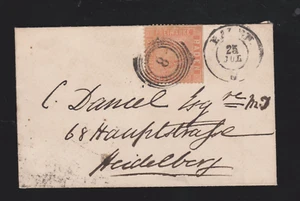 8
25
JUL
C. Daniel Esqre
68 Hauptstraße
Heidelberg